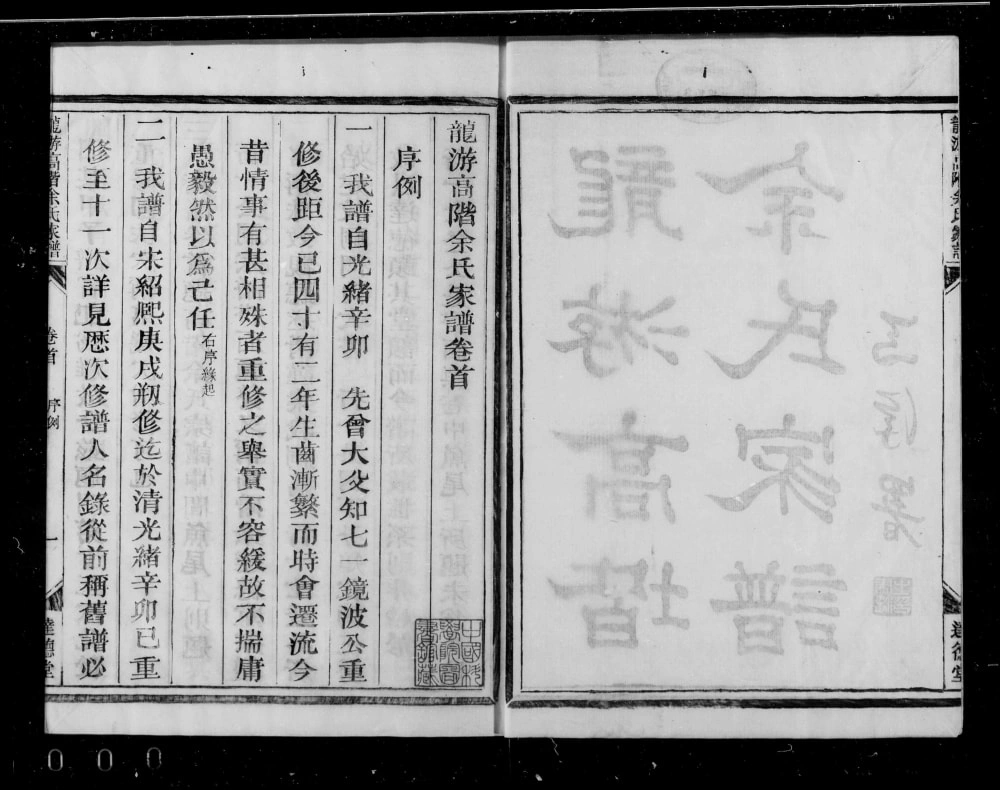 龍游高階余氏家譜卷首
序例
一 我譜自光緒辛卯 先曾大父知七一鏡波公重
修後距今已四十有二年生齒漸繁而時會遷流今
昔情事有甚相殊者重修之舉實不容緩故不揣庸
愚毅然以爲己任右序緣起
二 我譜自宋紹熙庚戌刱修迄於清光緒辛卯已重
修至十一次詳見歷次修譜人名錄從前稱舊譜必
龍游高階余氏家譜
卷首
序例
一
達德堂
余氏家譜
龍游高堦